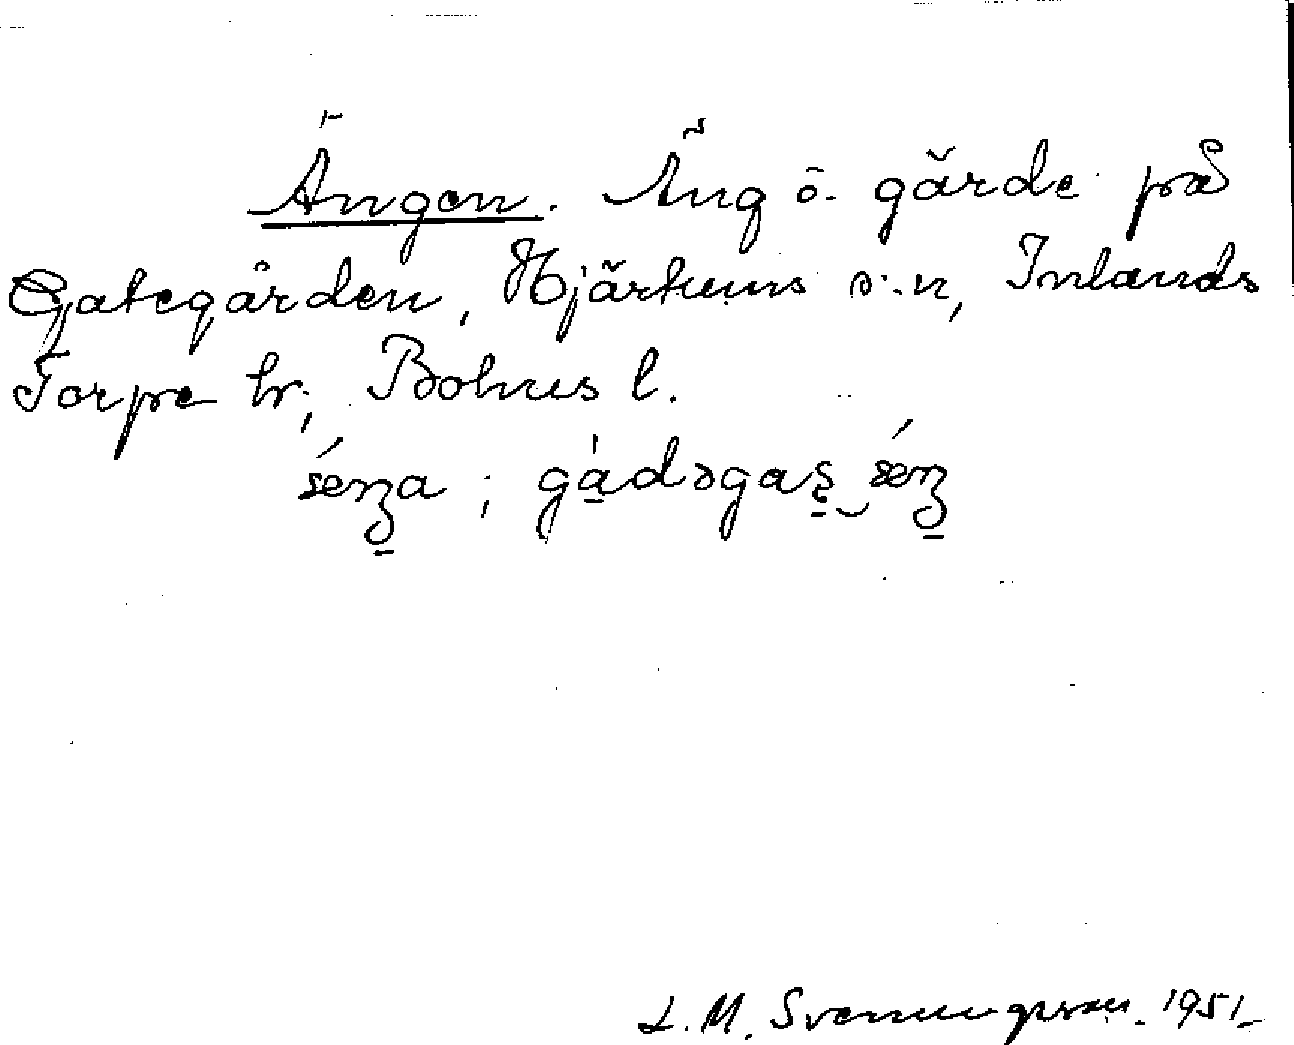 Ängen. Äng o. gärde på
Gategården, Hjärtums s:n, Inlands
Torpe hr., Bohus l.
L. M. Svenungsson. 1951